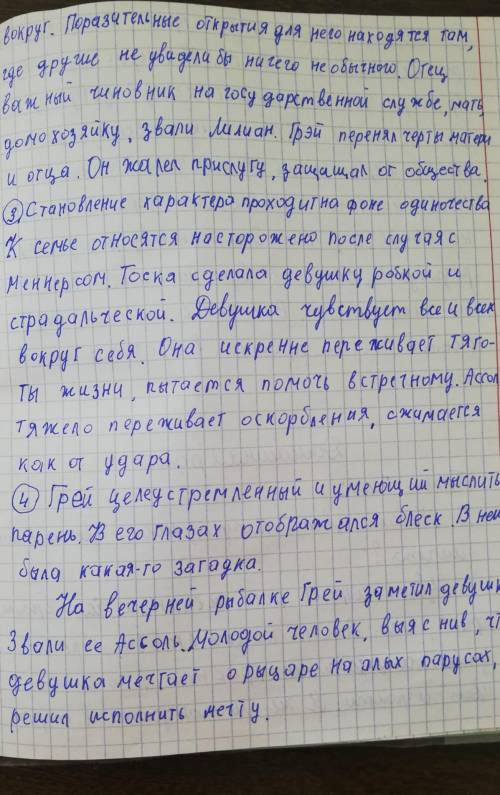 вокруг. Поразительные открытия для него находятся там,
где другие не увидели бы ничего необычного. Отец
важный чиновник на государственной службе, мать,
домохозяйку, звали Лилиан. Грэй перенял черты матери
и отца. Он жалел прислугу, защищал от общества.
3 Становление характера проходит на фоне одиночества
К семье относятся насторожено после случая с
Меннерсом. Тоска сделала девушку робкой и
страдальческой. Девушка чувствует все и всех
вокруг себя. Она искренне переживает тяго-
ты жизни, пытается помочь встречному. Ассол
тяжело переживает оскорбления, сжимается
как от удара.
4 Грей целеустремленный и умеющий мыслить
парень. В его глазах отображался блеск. В нем
была какая-то загадка.
На вечерней рыбалке Грей заметил девушк
Звали ее Ассоль. Молодой человек, выяснив, чт
девушка мечтает о рыцаре на алых парусах,
решил исполнить мечту.